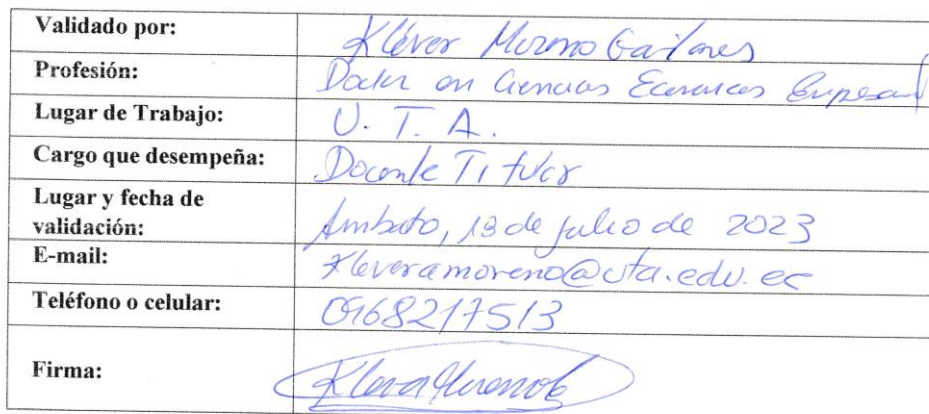 Validado por: Kléver Moreno Gavilanes
Profesión: Doctor en Ciencias Económicas Empresa
Lugar de Trabajo: U. T. A.
Cargo que desempeña: Docente Titular
Lugar y fecha de
validación: Ambato, 13 de julio de 2023
E-mail: kleveramoreno@uta.edu.ec
Teléfono o celular: 0968217513
Firma: